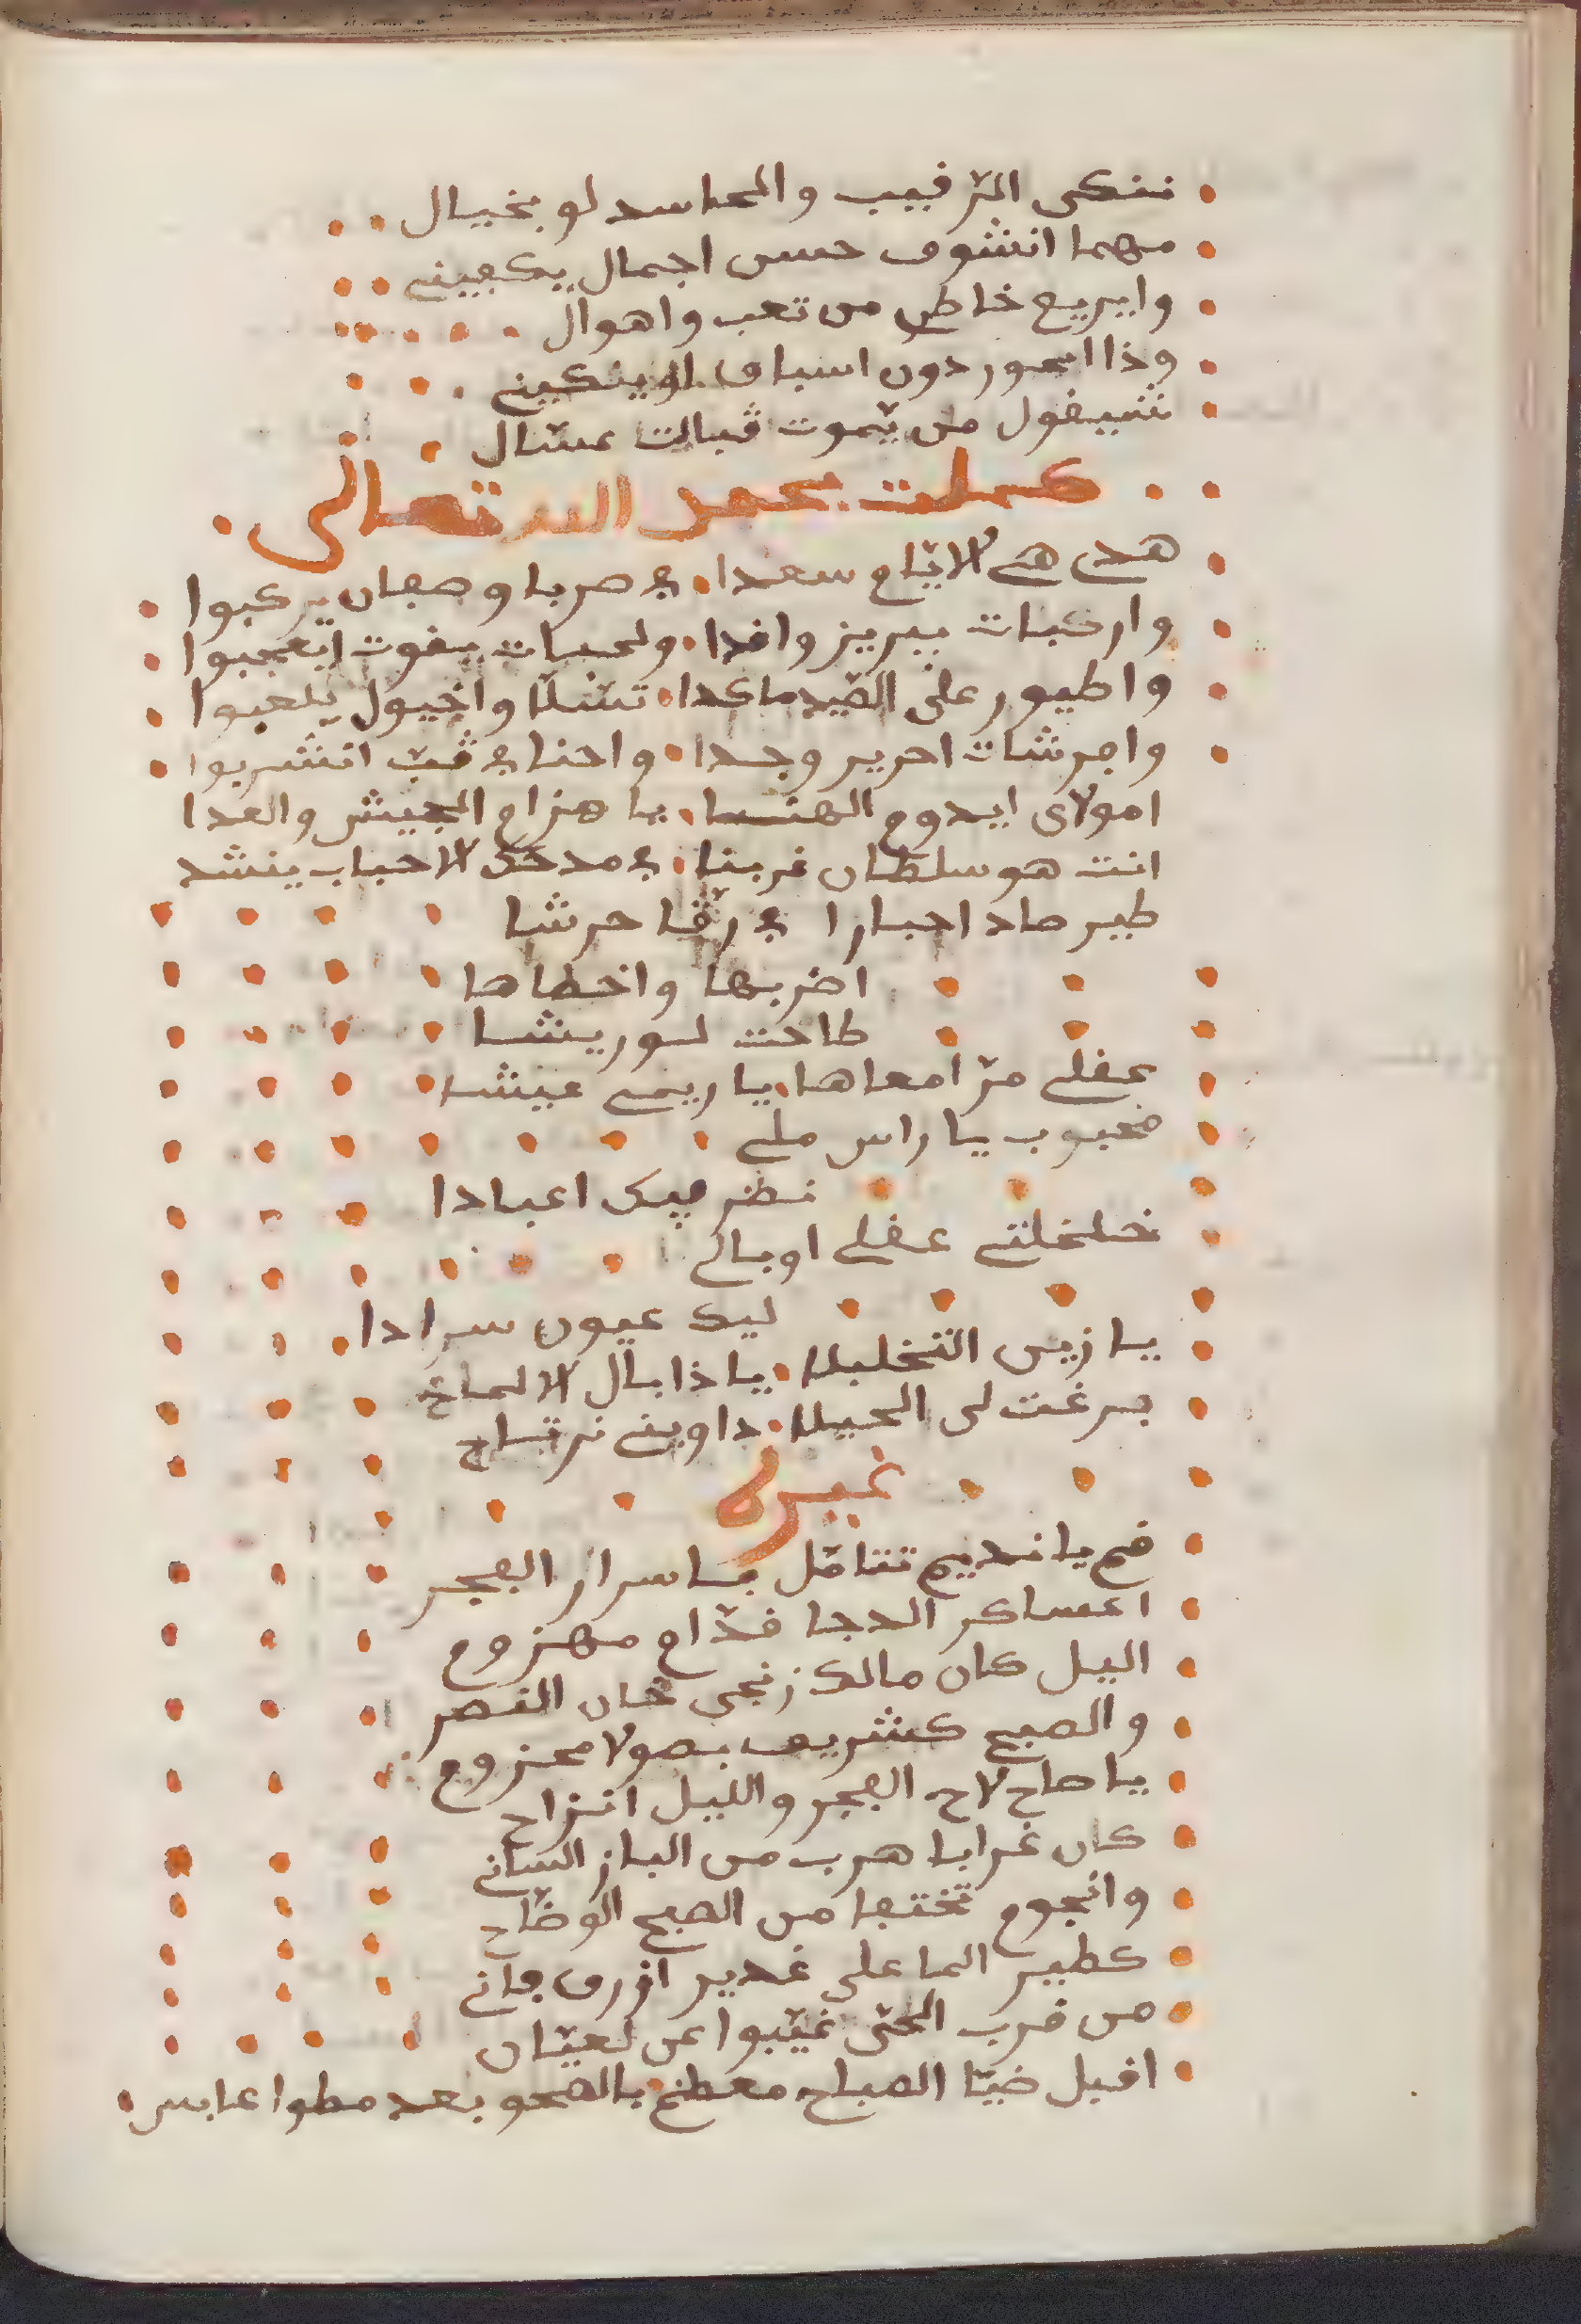 ننكى الرّقيب والحاسد لو بخيال
مهما انشوف حسن اجمال يكفيني
وايريح خاطر من تعب واهوال
وذا الهور دون اسباق لو ينكيني
شيقول من يّموت قبالت عسّال
كملت بحمد الله تعالى
هدي هي الايّام سعدا في صربا وصفان يركبوا
واركبات ببريز واقدا ولحيات بقوت ايعجبوا
واطيور على الصّيد ماكدا تسّلّا واخيول يلعبوا
وافرشات احرير وجدا واحنا في قبّ انشربوا
امولاي ايدوم الهنا يا هزام الجيش والعدا
انت هو سلطان غربنا في مدحك الاحباب ينشد
طير صاد احبارا في رڨا حرشا
اضربها واخطاها
طاحت لو ريشا
عقلي مرّ امعاها يا ريمي عيشا
محبوب يا راس ملي
نظر فيك اعبادا
خلخلتي عقلي اوبالي
ليك عيون سرادا
يا زين التخليلا يا ذابال الالماح
برغت لى الحيلا داويني نرتاح
غيره
قم يا نديم تتامّل باسرار الفجر
اعساكر الدجا قدّام مهزوم
اليل كان مالك زنجي خان النصر
والصبح كشريف بصولا محزوم
يا صاح لاح الفجر والليل انزاح
كان غرابا هرب من الباز الساني
وانجوم تختفا من الصبح الوضّاح
كطير الما على غدير ازرق فاني
من قرب الحيّ غيّبوا عن لعيّان
اقبل ضيّا الصباح معطم بالصحو بعد مطوا عابس